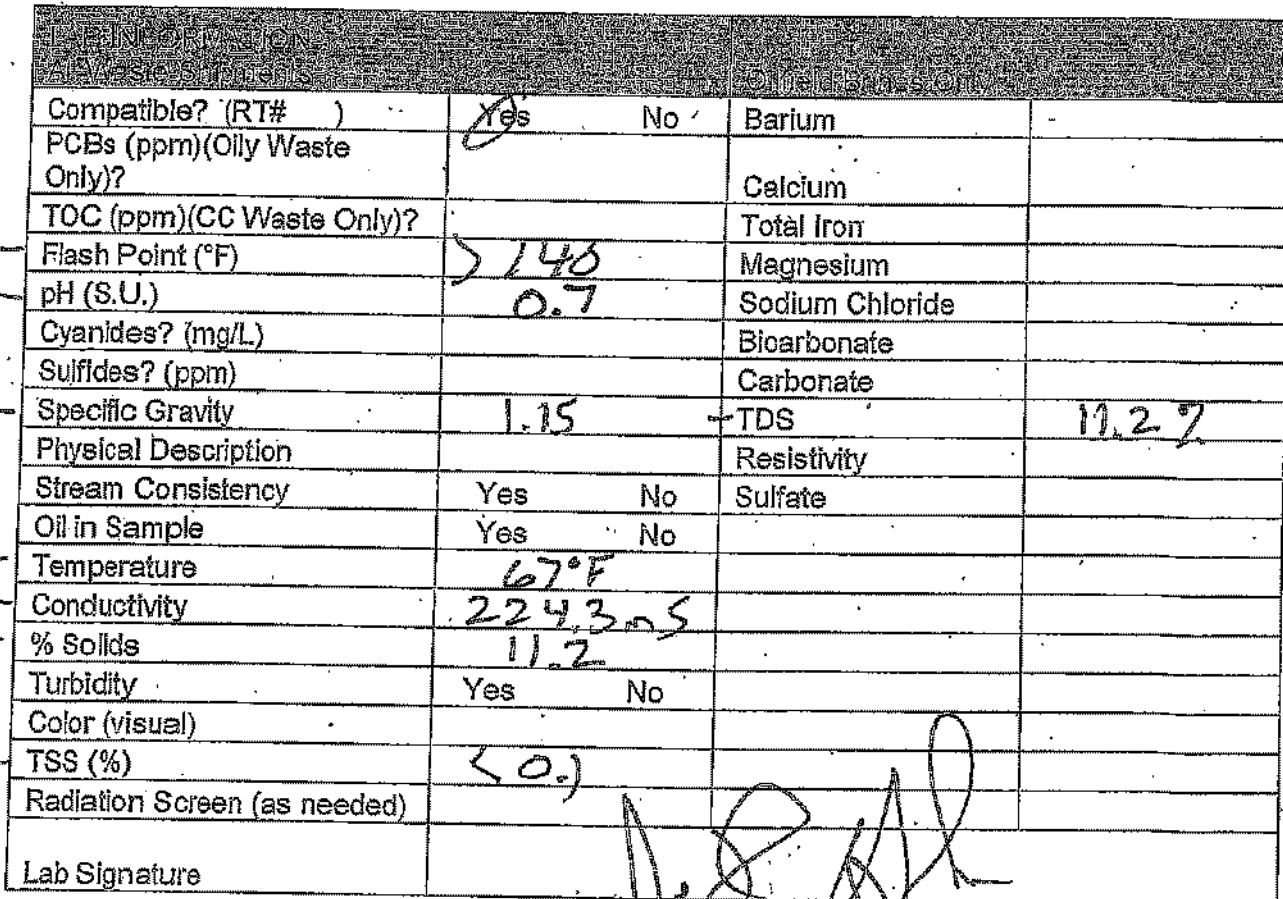 LAB INFORMATION
All Waste Shipments Oilfield Brines Only
Compatible? (RT# ) Yes No Barium
PCBs (ppm)(Oily Waste
Only)? Calcium
TOC (ppm)(CC Waste Only)? Total Iron
Flash Point (°F) > 140 Magnesium
pH (S.U.) 0.7 Sodium Chloride
Cyanides? (mg/L) Bicarbonate
Sulfides? (ppm) Carbonate
Specific Gravity 1.15 TDS 11.2 %
Physical Description Resistivity
Stream Consistency Yes No Sulfate
Oil in Sample Yes No
Temperature 67°F
Conductivity 224.3 mS
% Solids 11.2
Turbidity Yes No
Color (visual)
TSS (%) < 0.1
Radiation Screen (as needed)
Lab Signature